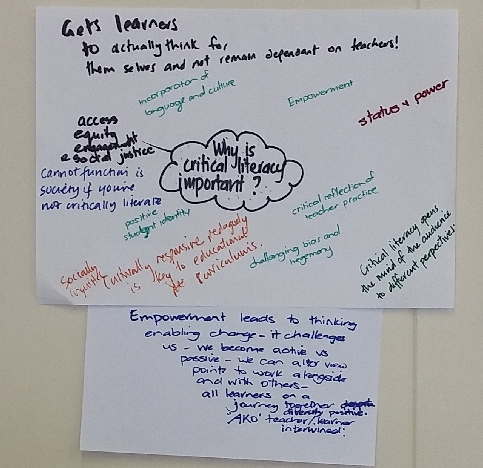 Gets learners
to actually think for
them selves and not remain dependant on teachers!
incorporation of
language and culture
Empowerment
status & power
access
equity
engagement
social justice
Why is
critical literacy
important?
Cannot function is
society if you're
not critically literate
positive
student identity
critical reflection of
teacher practice
challenging bias and
hegemony
Critical literacy opens
the mind of the audience
to different perspectives
Socially
linguistic
Culturally responsive pedagogy
is key to
curriculums.
Empowerment leads to thinking
enabling change - it challenges
us - we become active vs
passive - we can alter view
points to work alongside
and with others -
all learners on a
journey together
diversity positive.
'AKO' teacher/learner
intertwined!